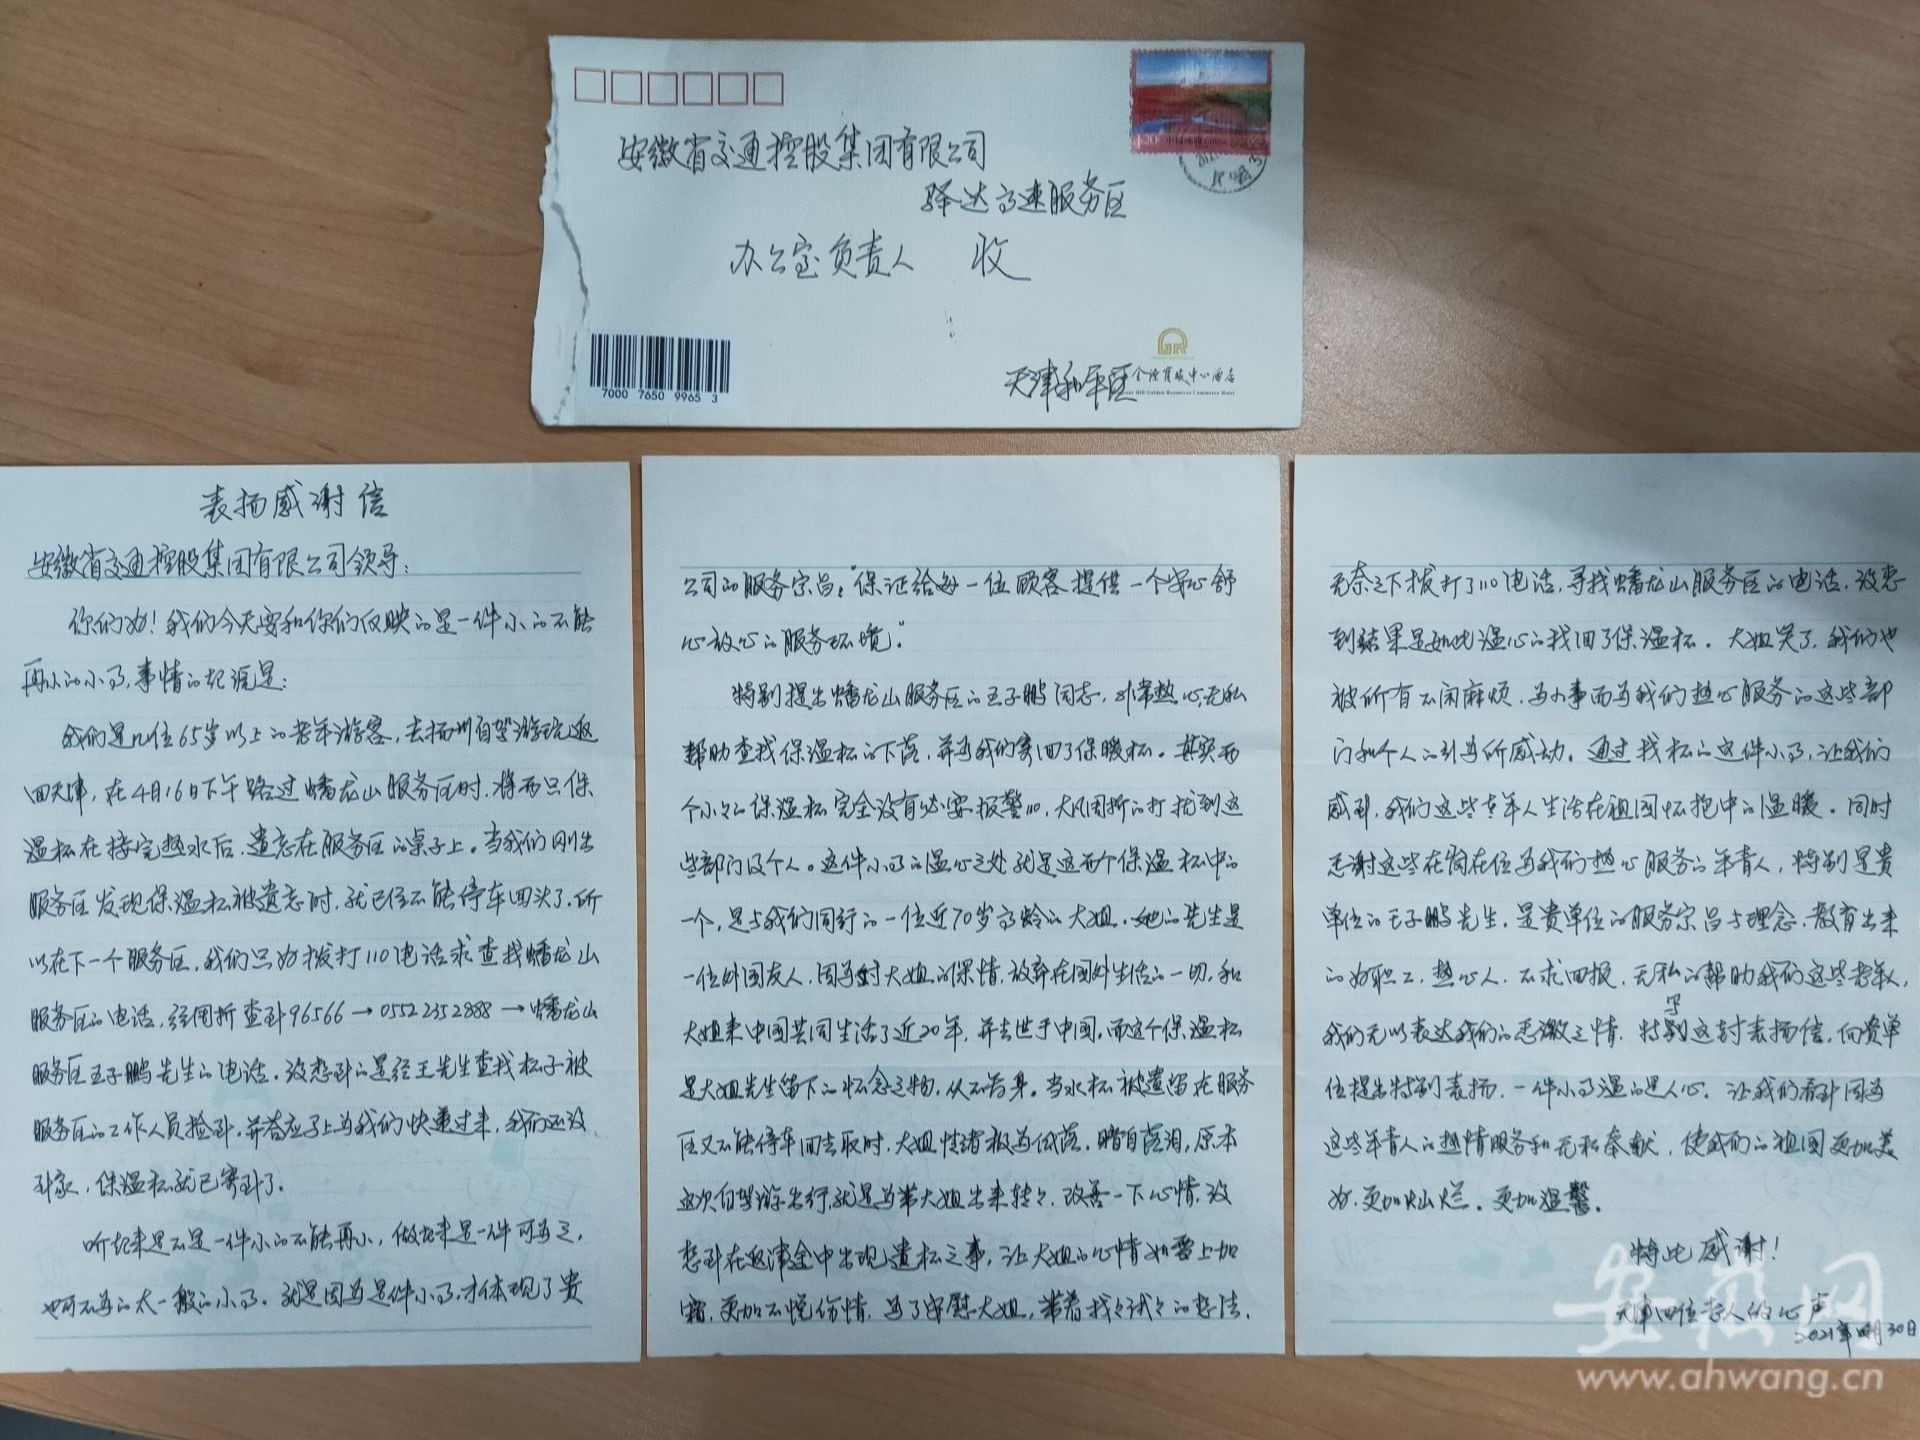 安徽省交通控股集团有限公司
驿达高速服务区
办公室负责人 收
1.20
7000 7650 9965 3
天津和平区
表扬感谢信
安徽省交通控股集团有限公司领导:
你们好!我们今天要和你们反映的是一件小的不能
再小的小事,事情的起源是:
我们是几位65岁以上的老年游客,去扬州自驾游玩返
回天津,在4月16日下午路过蟠龙山服务区时,将两只保
温杯在接完热水后,遗忘在服务区的桌子上。当我们刚出
服务区发现保温杯被遗忘时,就已经不能停车回头了,所
以在下一个服务区,我们只好拨打110电话求查找蟠龙山
服务区的电话,经周折查到96566→0552 2352888→蟠龙山
服务区王子鹏先生的电话,没想到的是经王先生查找杯子被
服务区的工作人员捡到,并答应马上为我们快递过来,我们还没
到家,保温杯就已寄到了。
听起来是不是一件小的不能再小,做起来是一件可为之,
也可不为的太一般的小事。就是因为是件小事,才体现了贵
公司的服务宗旨:"保证给每一位顾客提供一个安心舒
心放心的服务环境。"
特别提出蟠龙山服务区的王子鹏同志,非常热心,无私
帮助查找保温杯的下落,并为我们寄回了保暖杯。其实两
个小小的保温杯完全没有必要报警110,大风周折的打扰到这
些部门及个人。这件小事的温心之处就是这两个保温杯中的
一个,是与我们同行的一位近70岁高龄的大姐,她的先生是
一位外国友人,因为对大姐的深情,放弃在国外生活的一切,和
大姐来中国共同生活了近20年,并去世于中国,而这个保温杯
是大姐先生留下的怀念之物,从不离身。当水杯被遗留在服务
区又不能停车回去取时,大姐情绪极为低落,暗自落泪,原本
这次自驾游出行,就是为带大姐出来转转,改善一下心情,没
想到在返津途中出现遗杯之事,让大姐的心情如雪上加
霜,更加不悦伤情,为了安慰大姐,带着找找试试的想法,
无奈之下拨打了110电话,寻找蟠龙山服务区的电话,没想
到结果是如此温心的找回了保温杯。大姐哭了,我们也
被所有不闲麻烦,为小事而为我们热心服务的这些部
门和个人的引为所感动。通过找杯的这件小事,让我们
感到,我们这些老年人生活在祖国怀抱中的温暖。同时
感谢这些在岗在位为我们热心服务的年青人,特别是贵
单位的王子鹏先生,是贵单位的服务宗旨与理念,教育出来
的好职工,热心人,不求回报,无私的帮助我们这些老年人,
我们无以表达我们的感激之情,特写这封表扬信,向贵单
位提出特别表扬,一件小事温的是人心,让我们看到因为
这些年青人的热情服务和无私奉献,使我们的祖国更加美
好,更加灿烂。更加温馨。
特此感谢!
天津四位老人的心声
2021年4月30日
安徽网
www.ahwang.cn